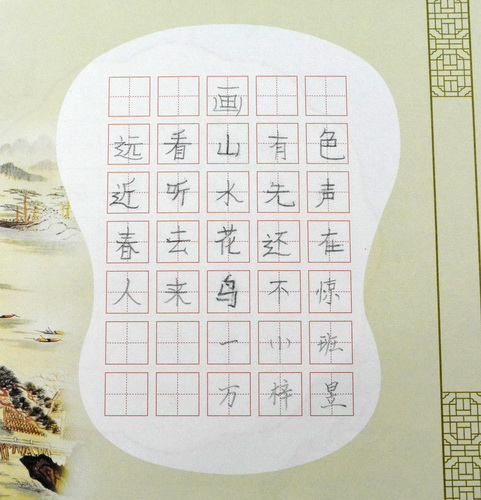 画
远看山有色
近听水先声
春去花还在
人来鸟不惊
一小班
万梓昱